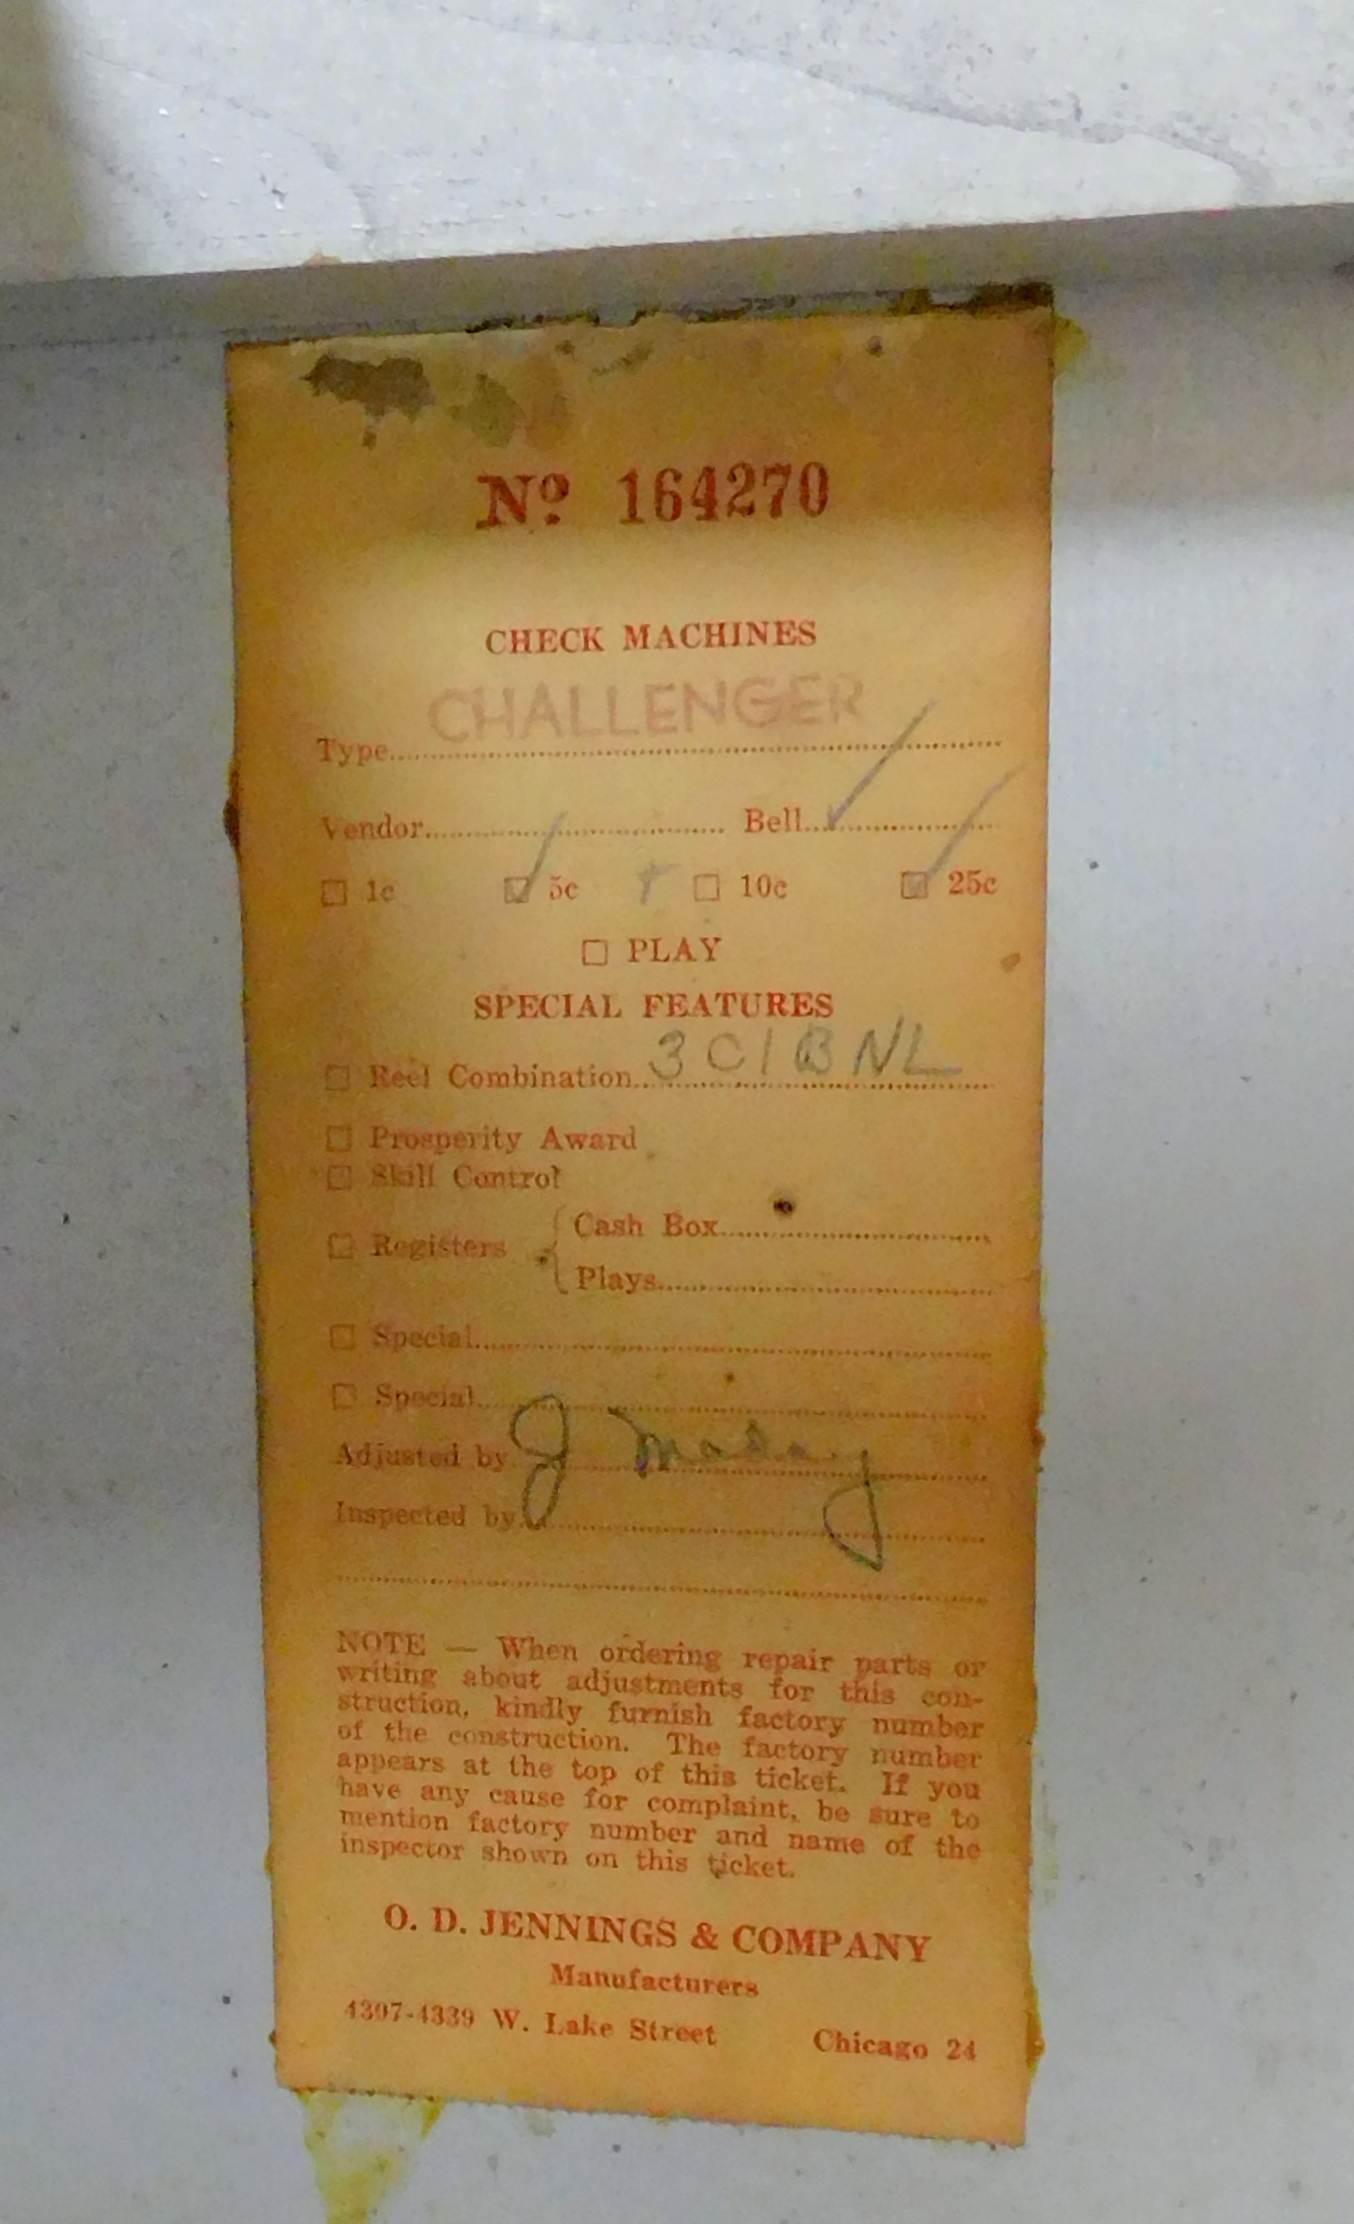 No 164270
CHECK MACHINES
CHALLENGER
Type
Vendor Bell ✓
☐ 1c ☑ 5c + ☐ 10c ☑ 25c
☐ PLAY
SPECIAL FEATURES
☐ Reel Combination 3 C 1 B NL
☐ Prosperity Award
☐ Skill Control
☐ Registers { Cash Box
Plays
☐ Special
☐ Special
Adjusted by J
Inspected by
NOTE — When ordering repair parts or
writing about adjustments for this con-
struction, kindly furnish factory number
of the construction. The factory number
appears at the top of this ticket. If you
have any cause for complaint, be sure to
mention factory number and name of the
inspector shown on this ticket.
O. D. JENNINGS & COMPANY
Manufacturers
4307-4339 W. Lake Street Chicago 24